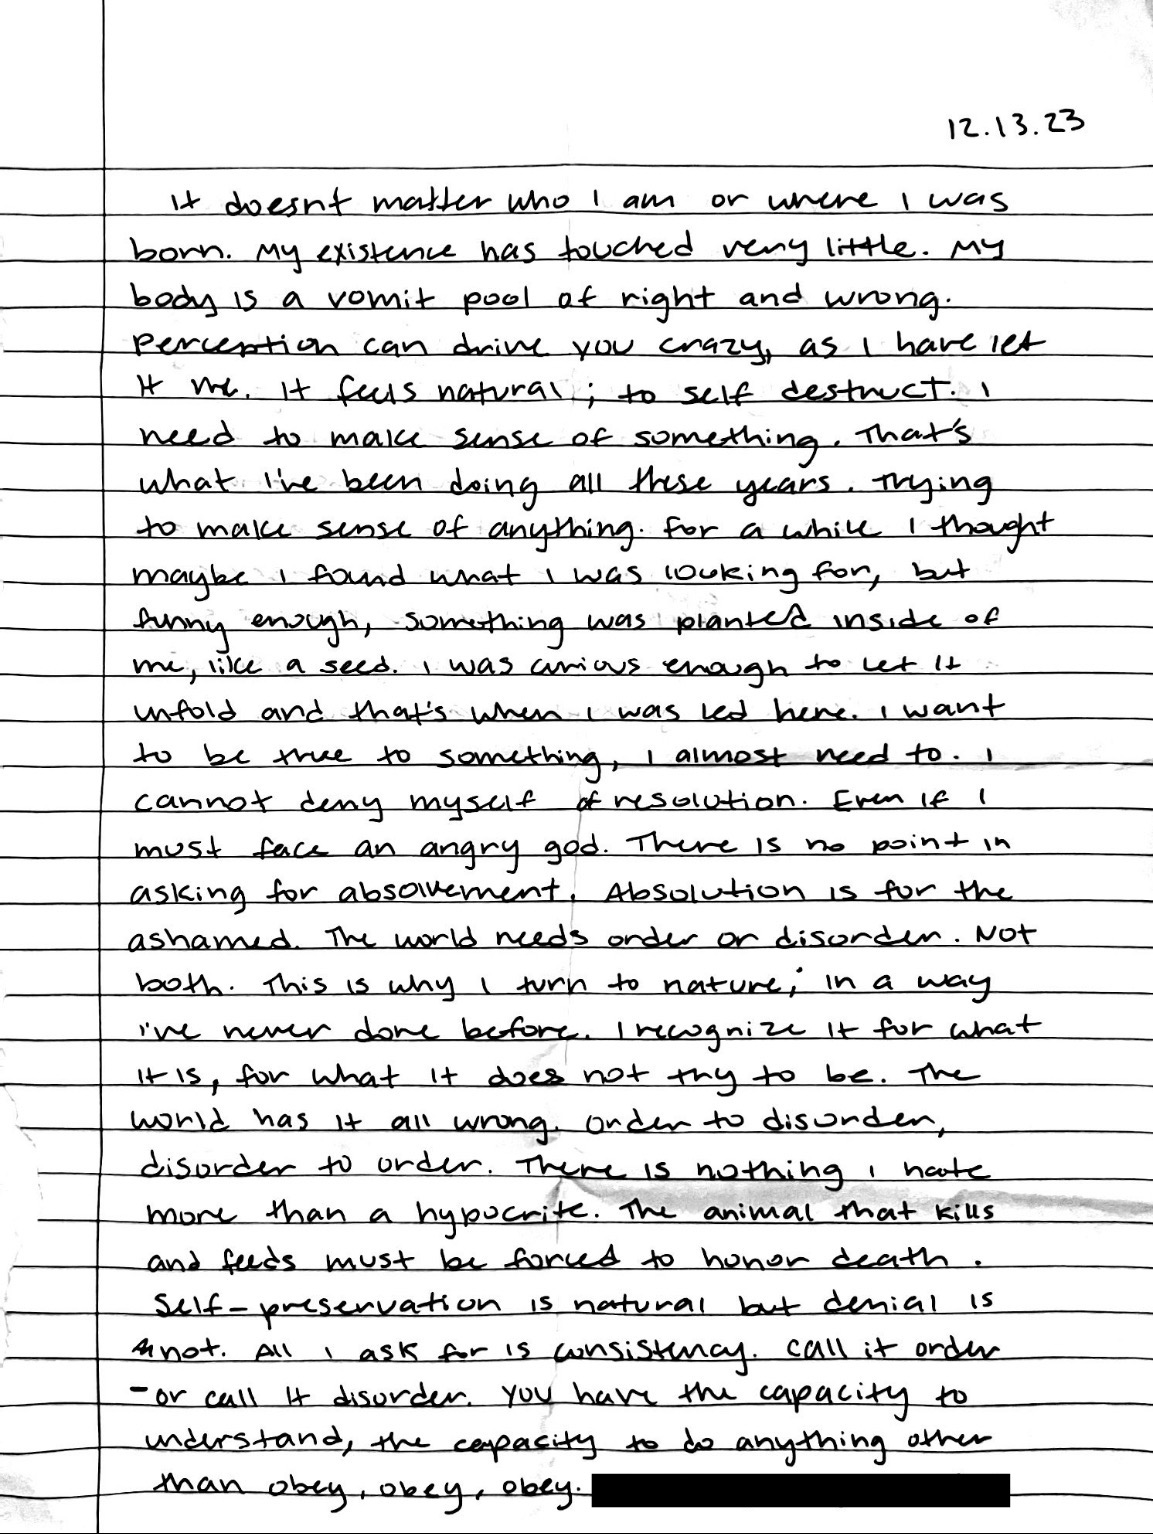 12.13.23
It doesnt matter who I am or where I was
born. My existence has touched very little. My
body is a vomit pool of right and wrong.
Perception can drive you crazy, as I have let
it me. It feels natural; to self destruct. I
need to make sense of something. That's
what I've been doing all these years. Trying
to make sense of anything. For a while I thought
maybe I found what I was looking for, but
funny enough, something was planted inside of
me, like a seed. I was curious enough to let it
unfold and that's when I was led here. I want
to be true to something, I almost need to. I
cannot deny myself of resolution. Even if I
must face an angry god. There is no point in
asking for absolvement. Absolution is for the
ashamed. The world needs order or disorder. Not
both. This is why I turn to nature; in a way
I've never done before. I recognize it for what
it is, for what it does not try to be. The
world has it all wrong. Order to disorder,
disorder to order. There is nothing I hate
more than a hypocrite. The animal that kills
and feeds must be forced to honor death.
Self-preservation is natural but denial is
not. All I ask for is consistency. Call it order
-or call it disorder. You have the capacity to
understand, the capacity to do anything other
than obey, obey, obey.